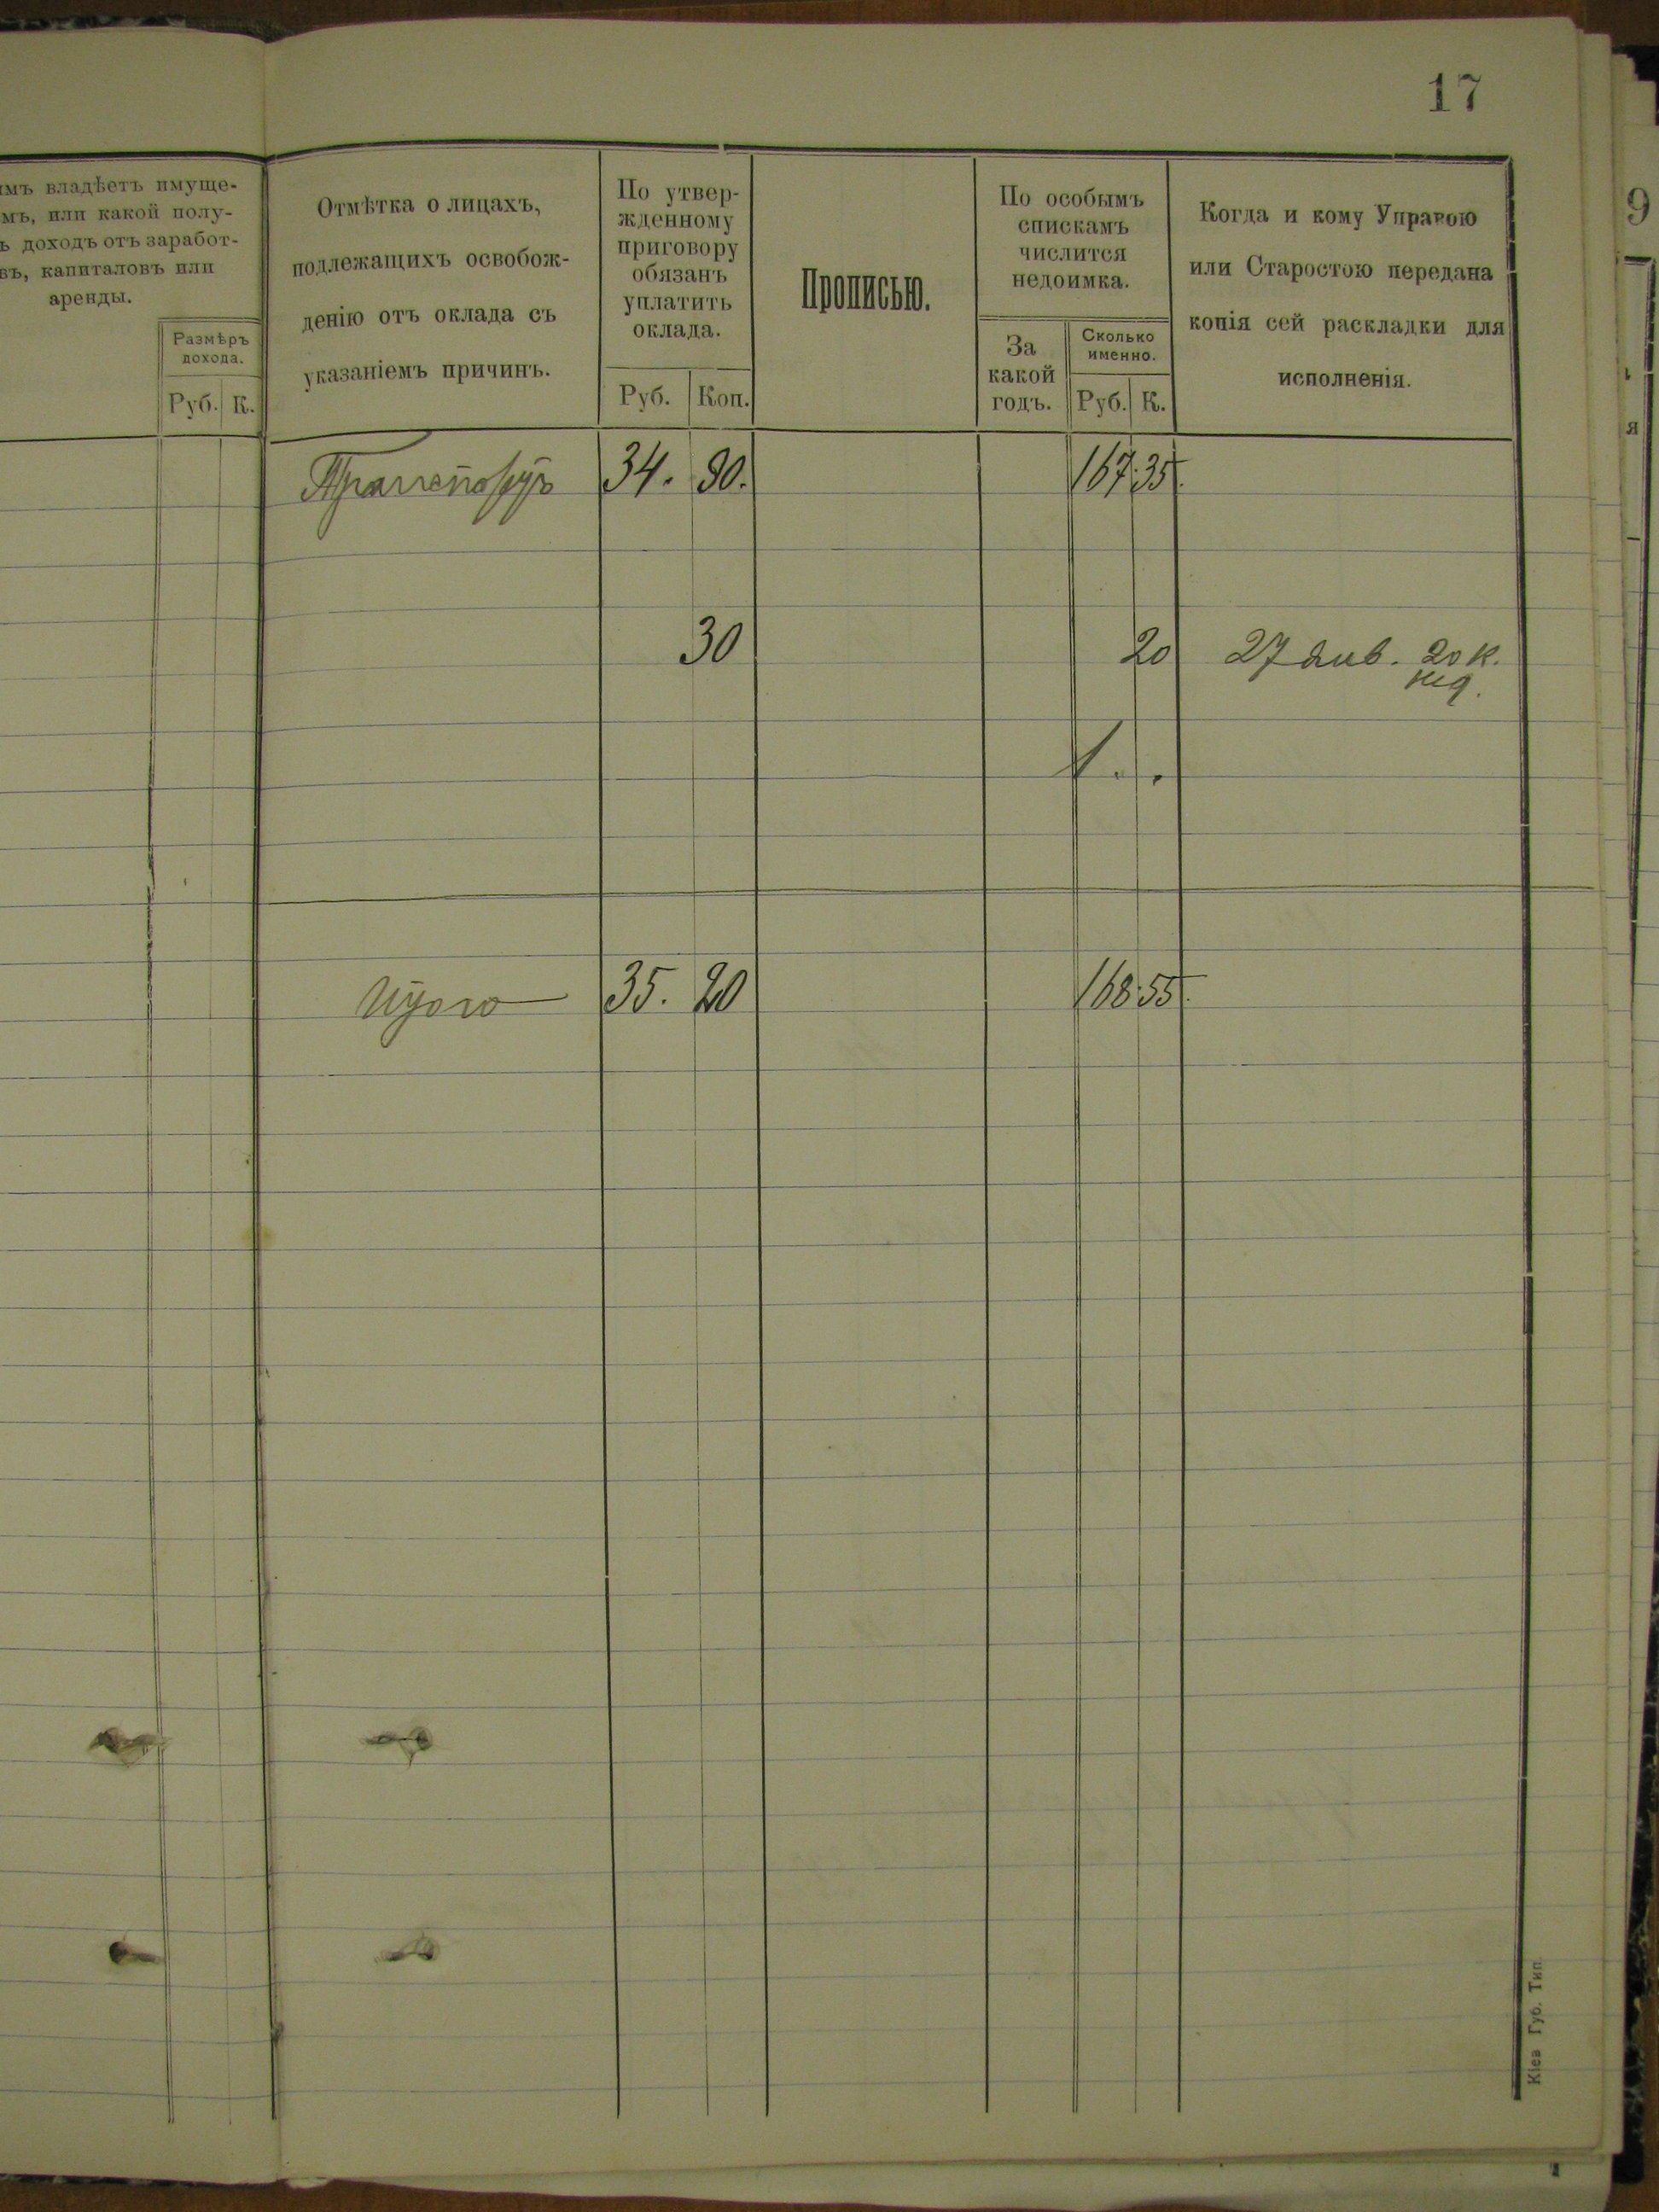 17
имъ владѣетъ имуще-
мъ, или какой полу-
ъ доходъ отъ заработ-
въ, капиталовъ или
аренды.
Размѣръ
дохода.
Руб. К.
Отмѣтка о лицахъ,
подлежащихъ освобож-
денію отъ оклада съ
указаніемъ причинъ.
По утвер-
жденному
приговору
обязанъ
уплатить
оклада.
Руб. Коп.
Прописью.
По особымъ
спискамъ
числится
недоимка.
За
какой
годъ.
Сколько
именно.
Руб. К.
Когда и кому Управою
или Старостою передана
копія сей раскладки для
исполненія.
9
я
Транспортъ 34. 90. 167.35.
30 20 27 янв. 20 к.
1. .
Итого 35. 20 168.55.
Кіев Губ. Тип.